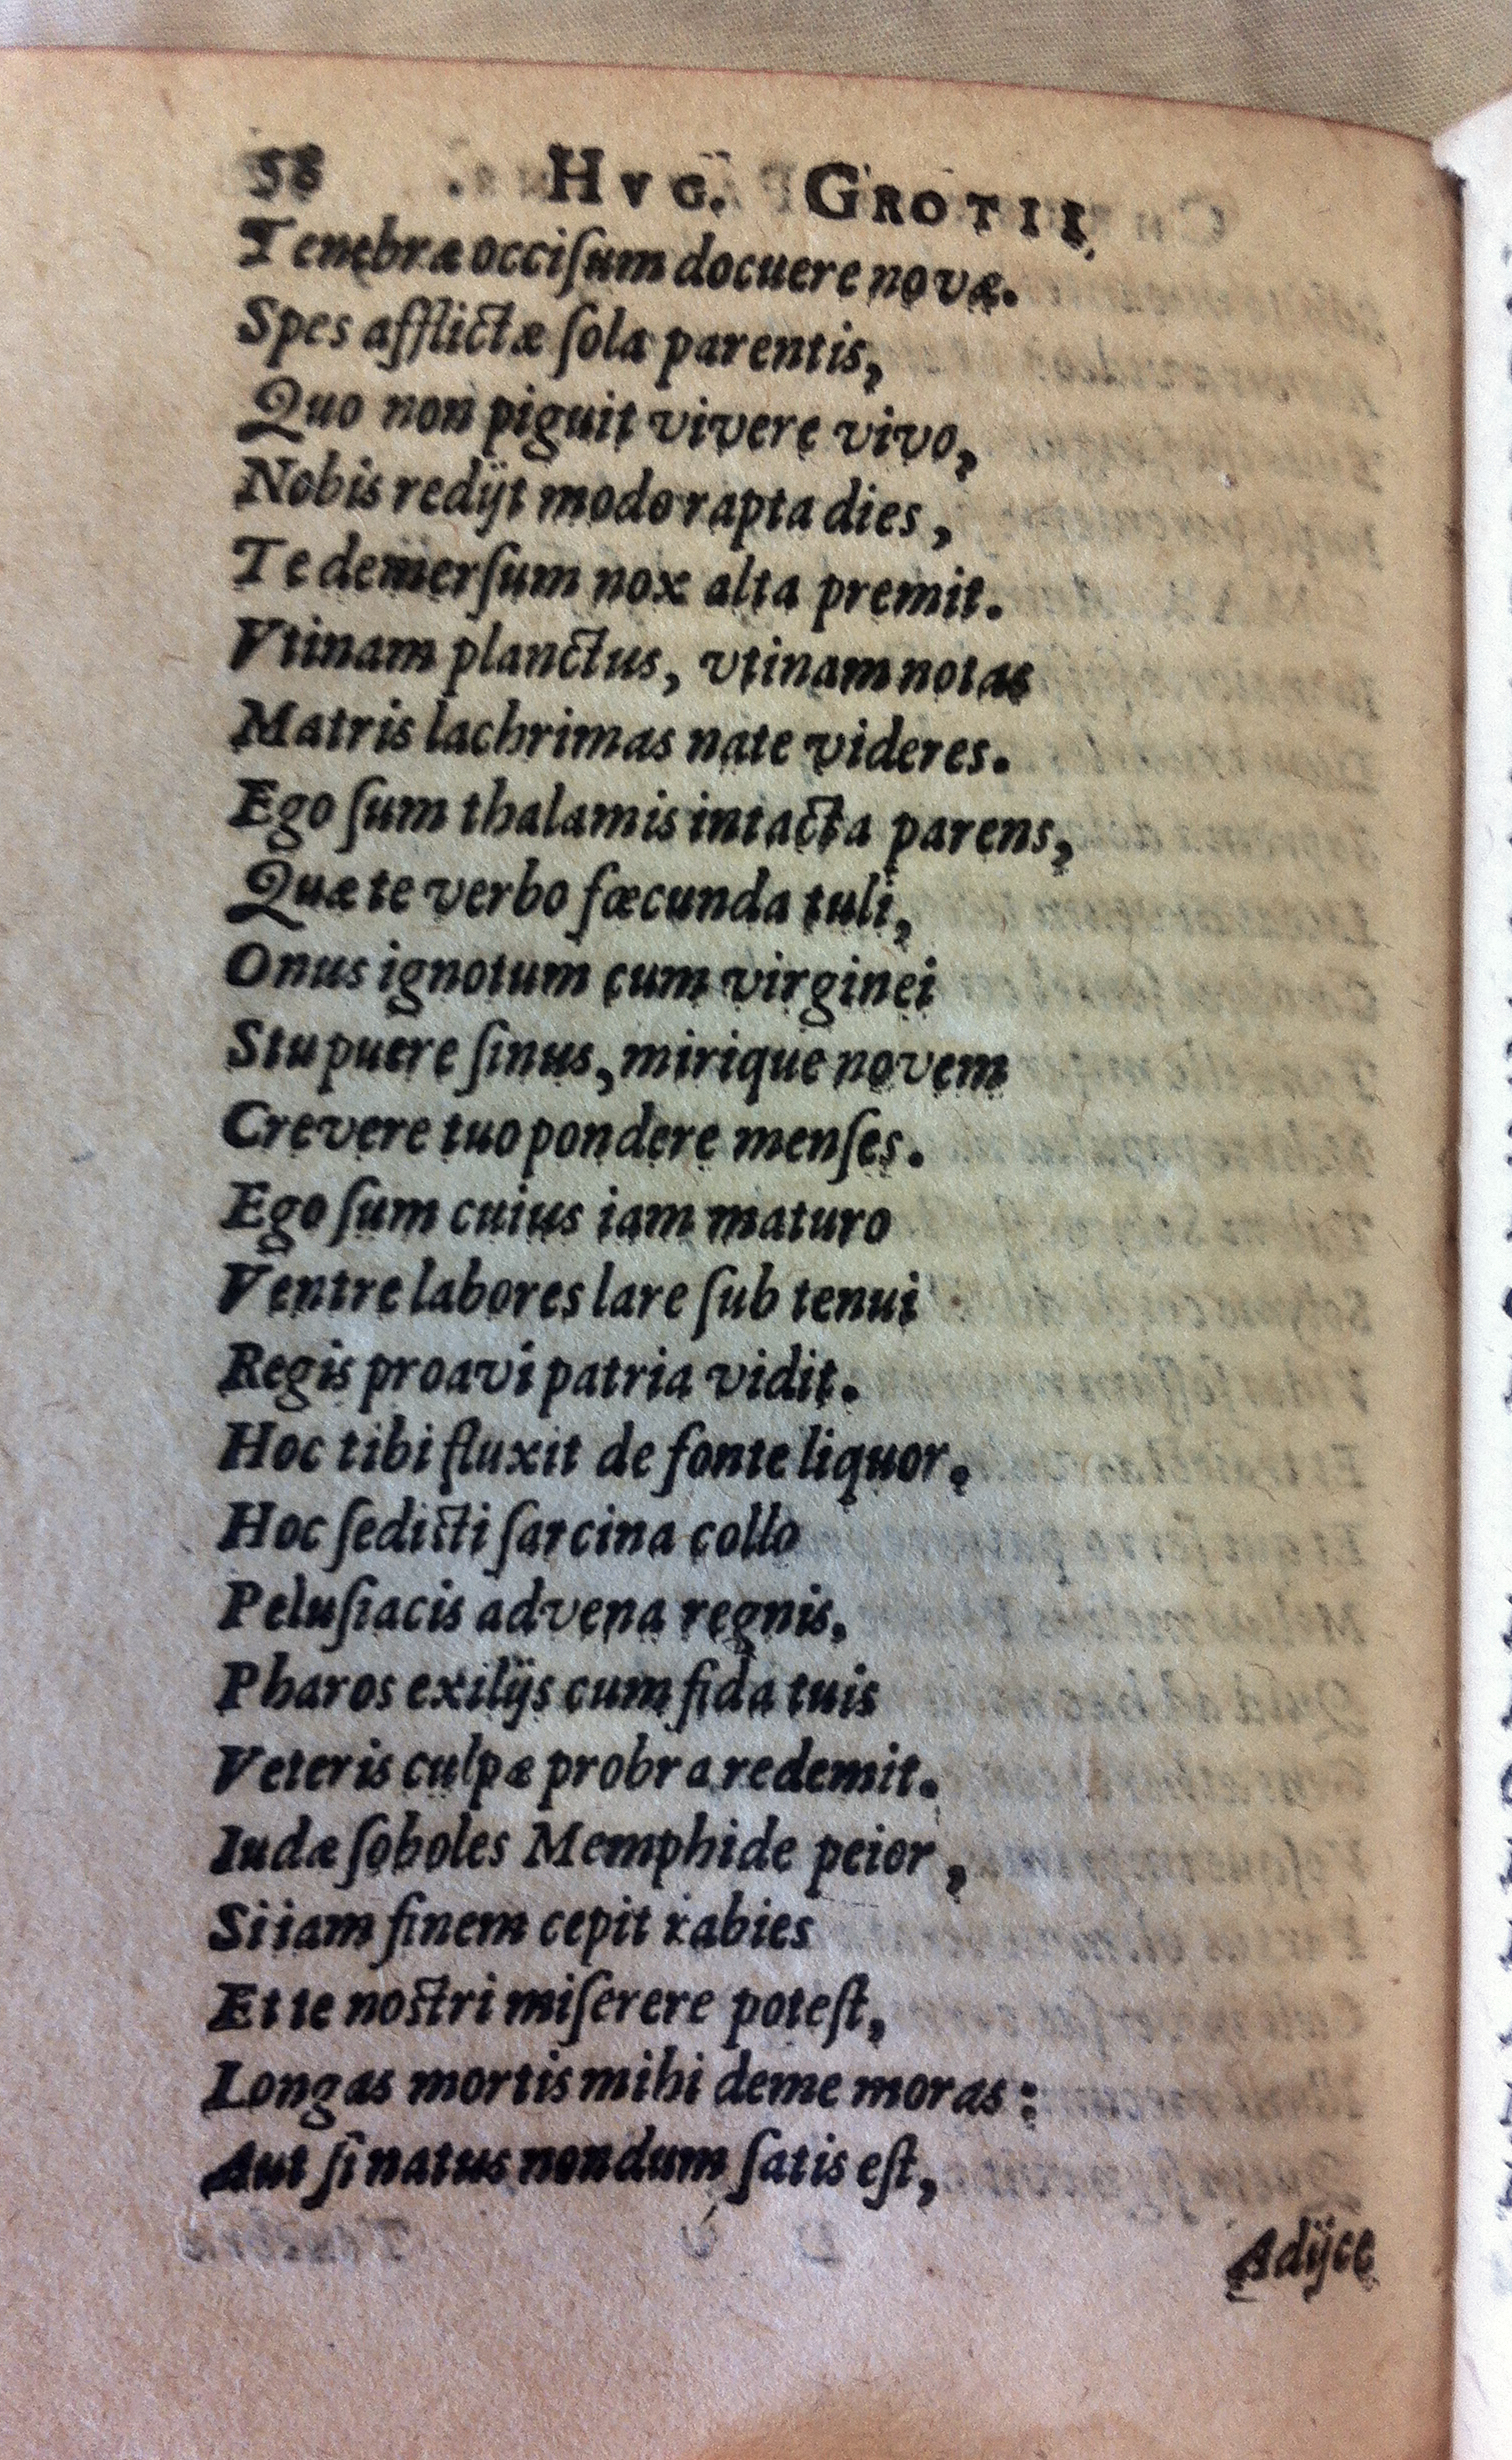 58 HVG. GROTII
Tenebræ occiſum docuere novæ.
Spes afflictæ ſola parentis,
Quo non piguit vivere vivo,
Nobis redijt modo rapta dies,
Te demerſum nox alta premit.
Vtinam planctus, vtinam notas
Matris lachrimas nate videres.
Ego ſum thalamis intacta parens,
Quæ te verbo fœcunda tuli,
Onus ignotum cum virginei
Stupuere ſinus, mirique novem
Crevere tuo pondere menſes.
Ego ſum cuius iam maturo
Ventre labores lare ſub tenui
Regis proavi patria vidit.
Hoc tibi fluxit de fonte liquor,
Hoc ſedisti ſarcina collo
Peluſiacis advena regnis,
Pharos exilijs cum fida tuis
Veteris culpæ probra redemit.
Iudæ ſoboles Memphide peior,
Si iam finem cepit rabies
Et te nostri miſerere poteſt,
Longas mortis mihi deme moras:
Aut ſi natus nondum ſatis eſt,
Adijce